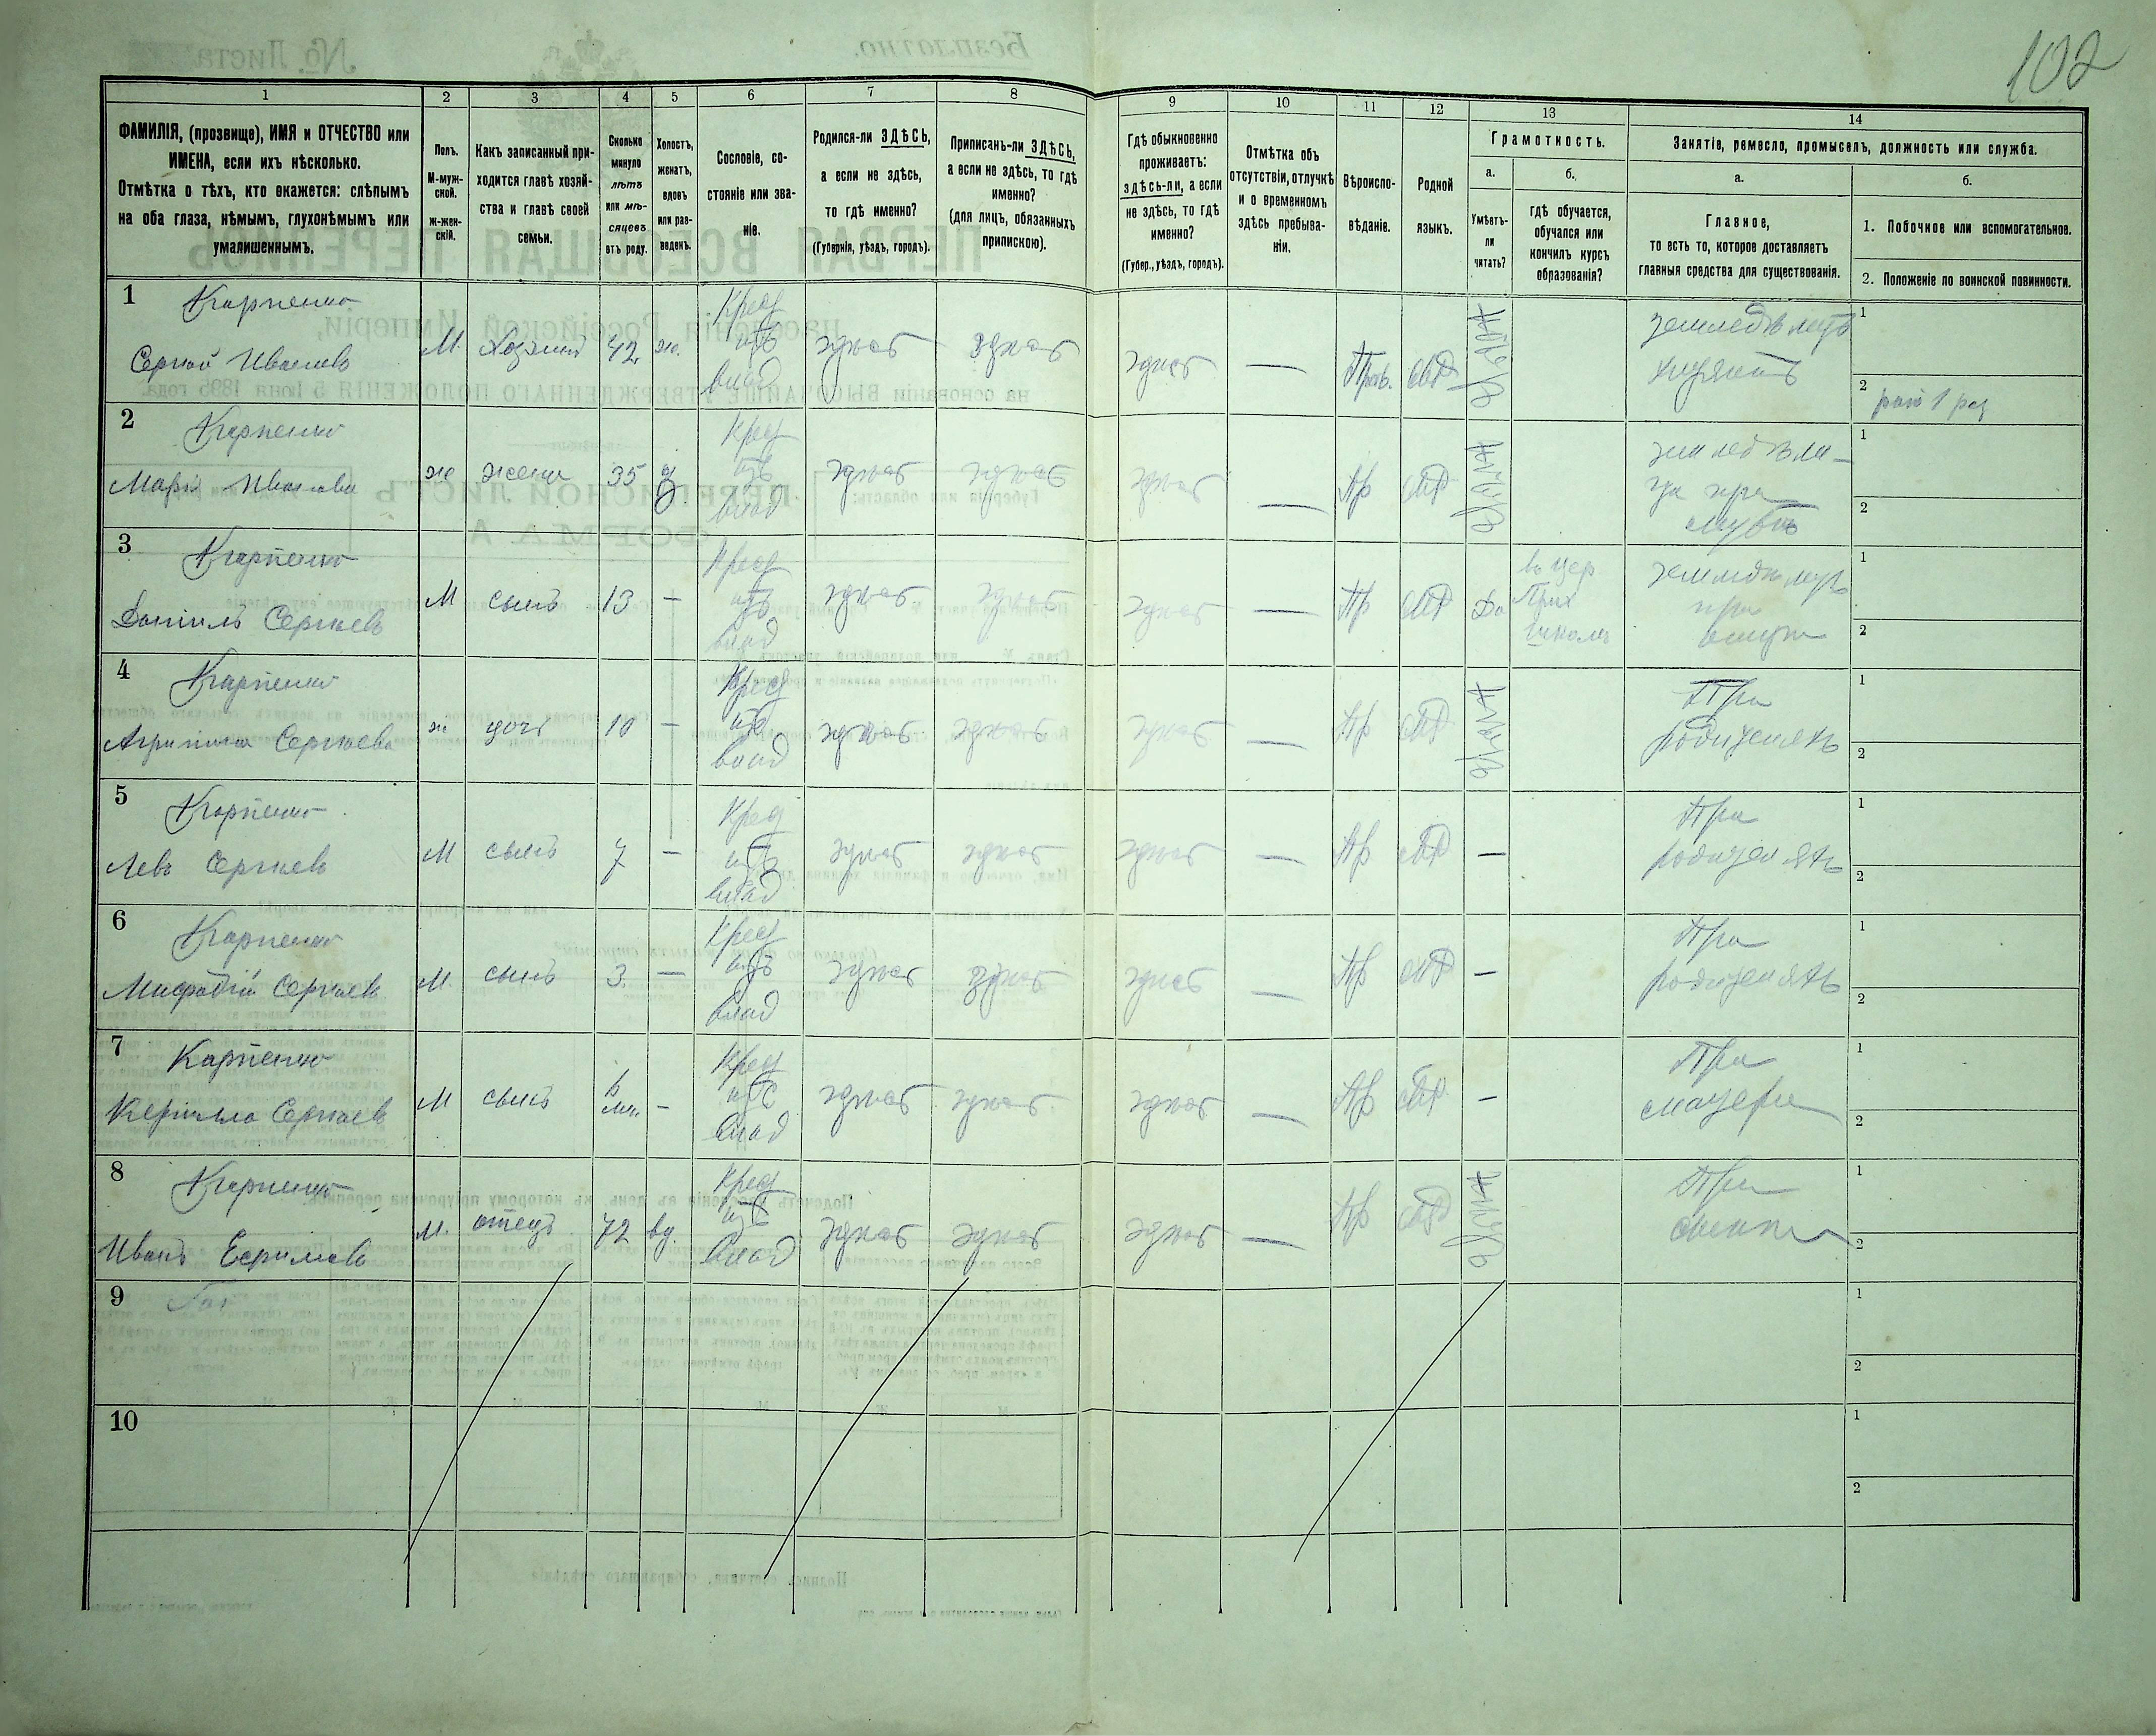 102
1
2
3
4
5
6
7
8
9
10
11
12
13
14
ФАМИЛІЯ, (прозвище), ИМЯ и ОТЧЕСТВО или
ИМЕНА, если ихъ нѣсколько.
Отмѣтка о тѣхъ, кто окажется: слѣпымъ
на оба глаза, нѣмымъ, глухонѣмымъ или
умалишеннымъ.
Полъ.
М-муж-
ской.
ж-жен-
скій.
Какъ записанный при-
ходится главѣ хозяй-
ства и главѣ своей
семьи.
Сколько
минуло
лѣтъ
или мѣ-
сяцевъ
отъ роду.
Холостъ,
женатъ,
вдовъ
или раз-
веденъ.
Сословіе, со-
стояніе или зва-
ніе.
Родился-ли ЗДѢСЬ,
а если не здѣсь,
то гдѣ именно?
(Губернія, уѣздъ, городъ).
Приписанъ-ли ЗДѢСЬ,
а если не здѣсь, то гдѣ
именно?
(для лицъ, обязанныхъ
припискою).
Гдѣ обыкновенно
проживаетъ:
здѣсь-ли, а если
не здѣсь, то гдѣ
именно?
(Губер., уѣздъ, городъ).
Отмѣтка объ
отсутствіи, отлучкѣ
и о временномъ
здѣсь пребыва-
ніи.
Вѣроиспо-
вѣданіе.
Родной
языкъ.
Грамотность.
а.
Умѣетъ-
ли
читать?
б.
гдѣ обучается,
обучался или
кончилъ курсъ
образованія?
Занятіе, ремесло, промыселъ, должность или служба.
а.
Главное,
то есть то, которое доставляетъ
главныя средства для существованія.
б.
1. Побочное или вспомогательное.
2. Положеніе по воинской повинности.
1 Карпенко
Сергѣй Ивановъ
М. Хозяинъ 42 ж.
Крес
изъ
влад
здѣсь здѣсь здѣсь — Прав.
земледѣлецъ
1
2
2 Карпенко
Марія Иванова
ж жена 35 з
Крес
изъ
влад
здѣсь здѣсь здѣсь — Пр
1
2
3 Карпенко
Даніилъ Сергѣевъ
М сынъ 13 —
Крес
изъ
влад
здѣсь здѣсь здѣсь — Пр Да
въ цер
Прих
школѣ
земледѣлецъ
при
отцѣ
1
2
4 Карпенко
Агрипина Сергѣева
ж дочь 10 —
Крес
изъ
влад
здѣсь здѣсь здѣсь — Пр
При
родителяхъ
1
2
5 Карпенко
Левъ Сергѣевъ
М сынъ 7 —
Крес
изъ
влад
здѣсь здѣсь здѣсь — Пр —
При
родителяхъ
1
2
6 Карпенко
Мифодій Сергѣевъ
М. сынъ 3 —
Крес
изъ
влад
здѣсь здѣсь здѣсь — Пр —
При
родителяхъ
1
2
7 Карпенко
Кирилло Сергѣевъ
М сынъ
мѣс. —
Крес
изъ
влад
здѣсь здѣсь здѣсь — Пр —
При
матери
1
2
8 Карпенко
Иванъ Ефимовъ
М. отецъ 72 вд.
Крес
изъ
влад
здѣсь здѣсь здѣсь — Пр
При
сынѣ
1
2
9
1
2
10
1
2